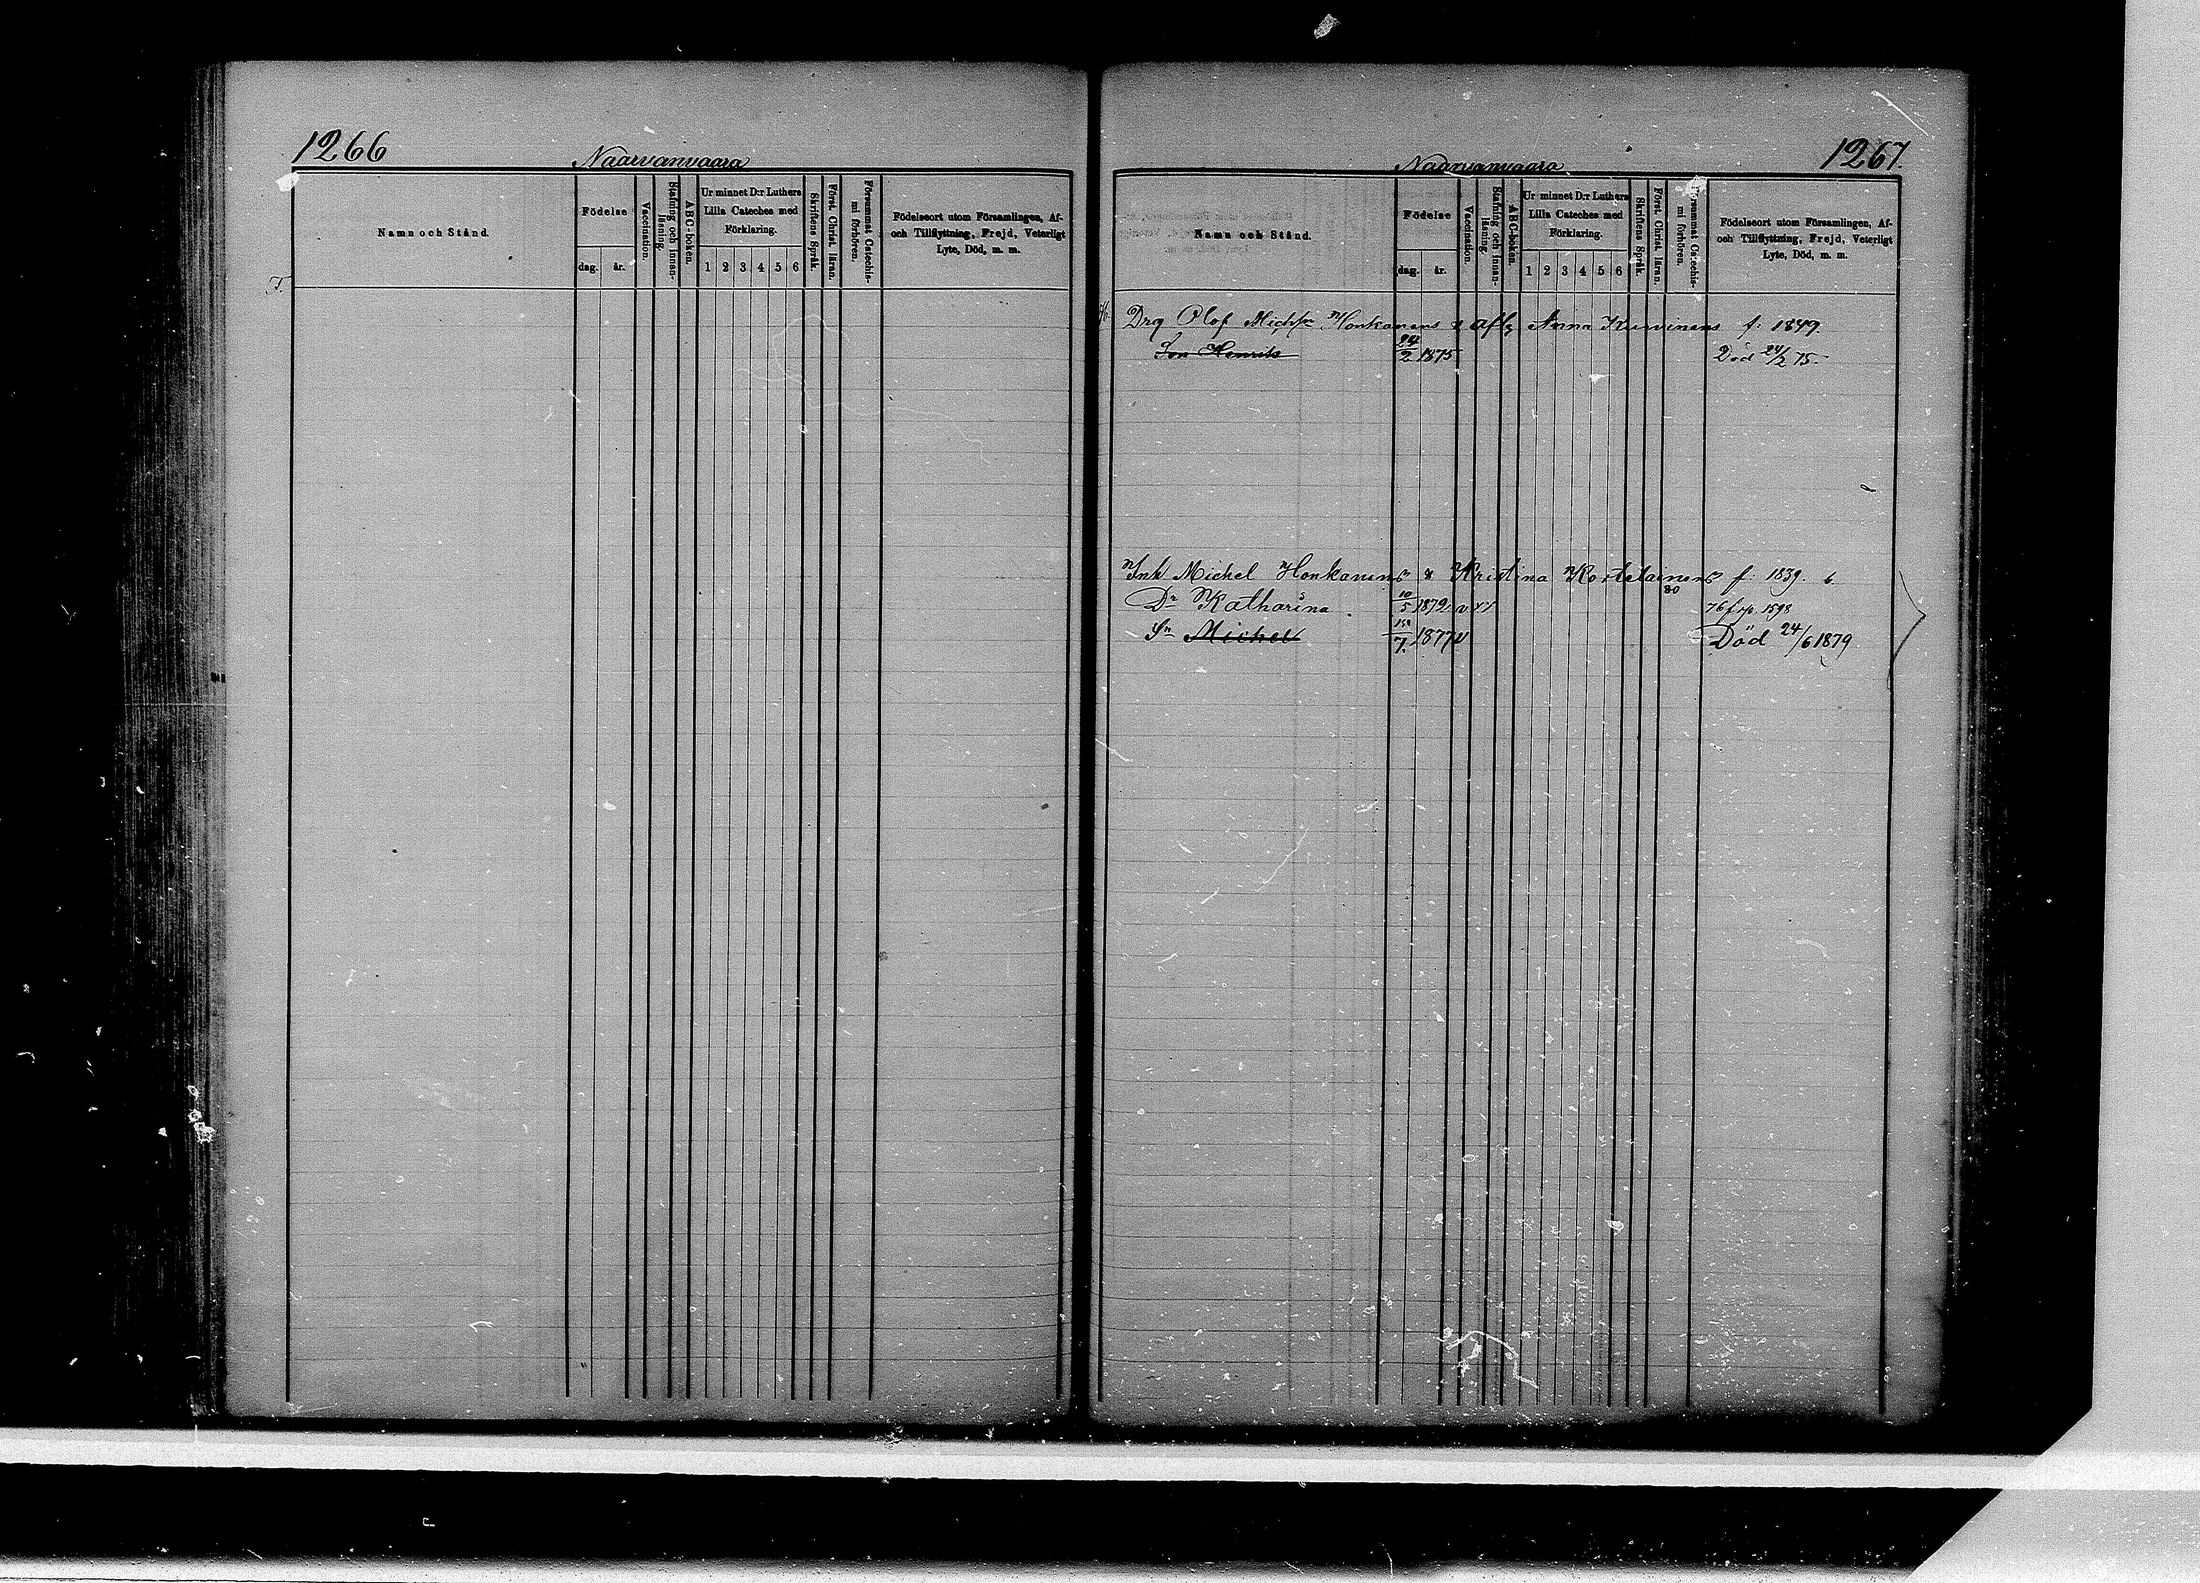 1266
Naarvanvaara
Namn och Stånd.
Födelse
dag. år.
Vaccination.
Stafning och innan-läsning.
ABC-boken.
Ur minnet D:r Luthers
Lilla Cateches med
Förklaring.
1 2 3 4 5 6
Skriftens Språk.
Först. Christ. läran.
Försummat Catechis-mi förhören.
Födelseort utom Församlingen, Af-
och Tillflyttning, Frejd, Veterligt
Lyte, Död, m. m.
1267.
Naarvanvaara
Namn och Stånd.
Födelse
dag. år.
Vaccination.
Stafning och innan-läsning.
ABC-boken.
Ur minnet D:r Luthers
Lilla Cateches med
Förklaring.
1 2 3 4 5 6
Skriftens Språk.
Först. Christ. läran.
Försummat Catechis-mi förhören.
Födelseort utom Församlingen, Af-
och Tillflyttning, Frejd, Veterligt
Lyte, Död, m. m.
Drg Olof Honkanens & Anna f: 1849.
Son Henrik 24/2 1875 Död 24/2 75.
Inh Michel Honkanens & Kristina Kortelainens f: 1839.
Dr Katharina 10/5 1872 v 80
Sn Michel /7 1877 v Död 24/6 1879